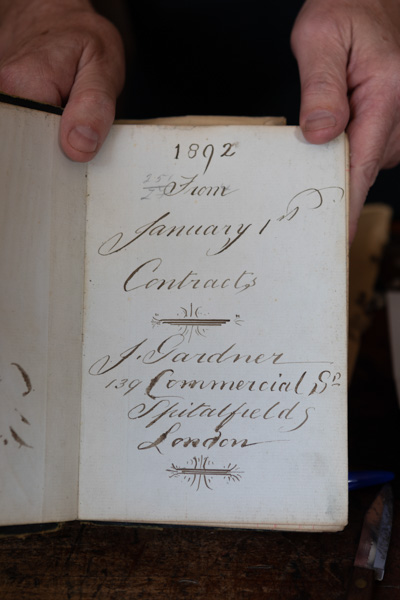 1892
From
January 1st
Contracts
J. Gardner
139 Commercial St
Spitalfields
London